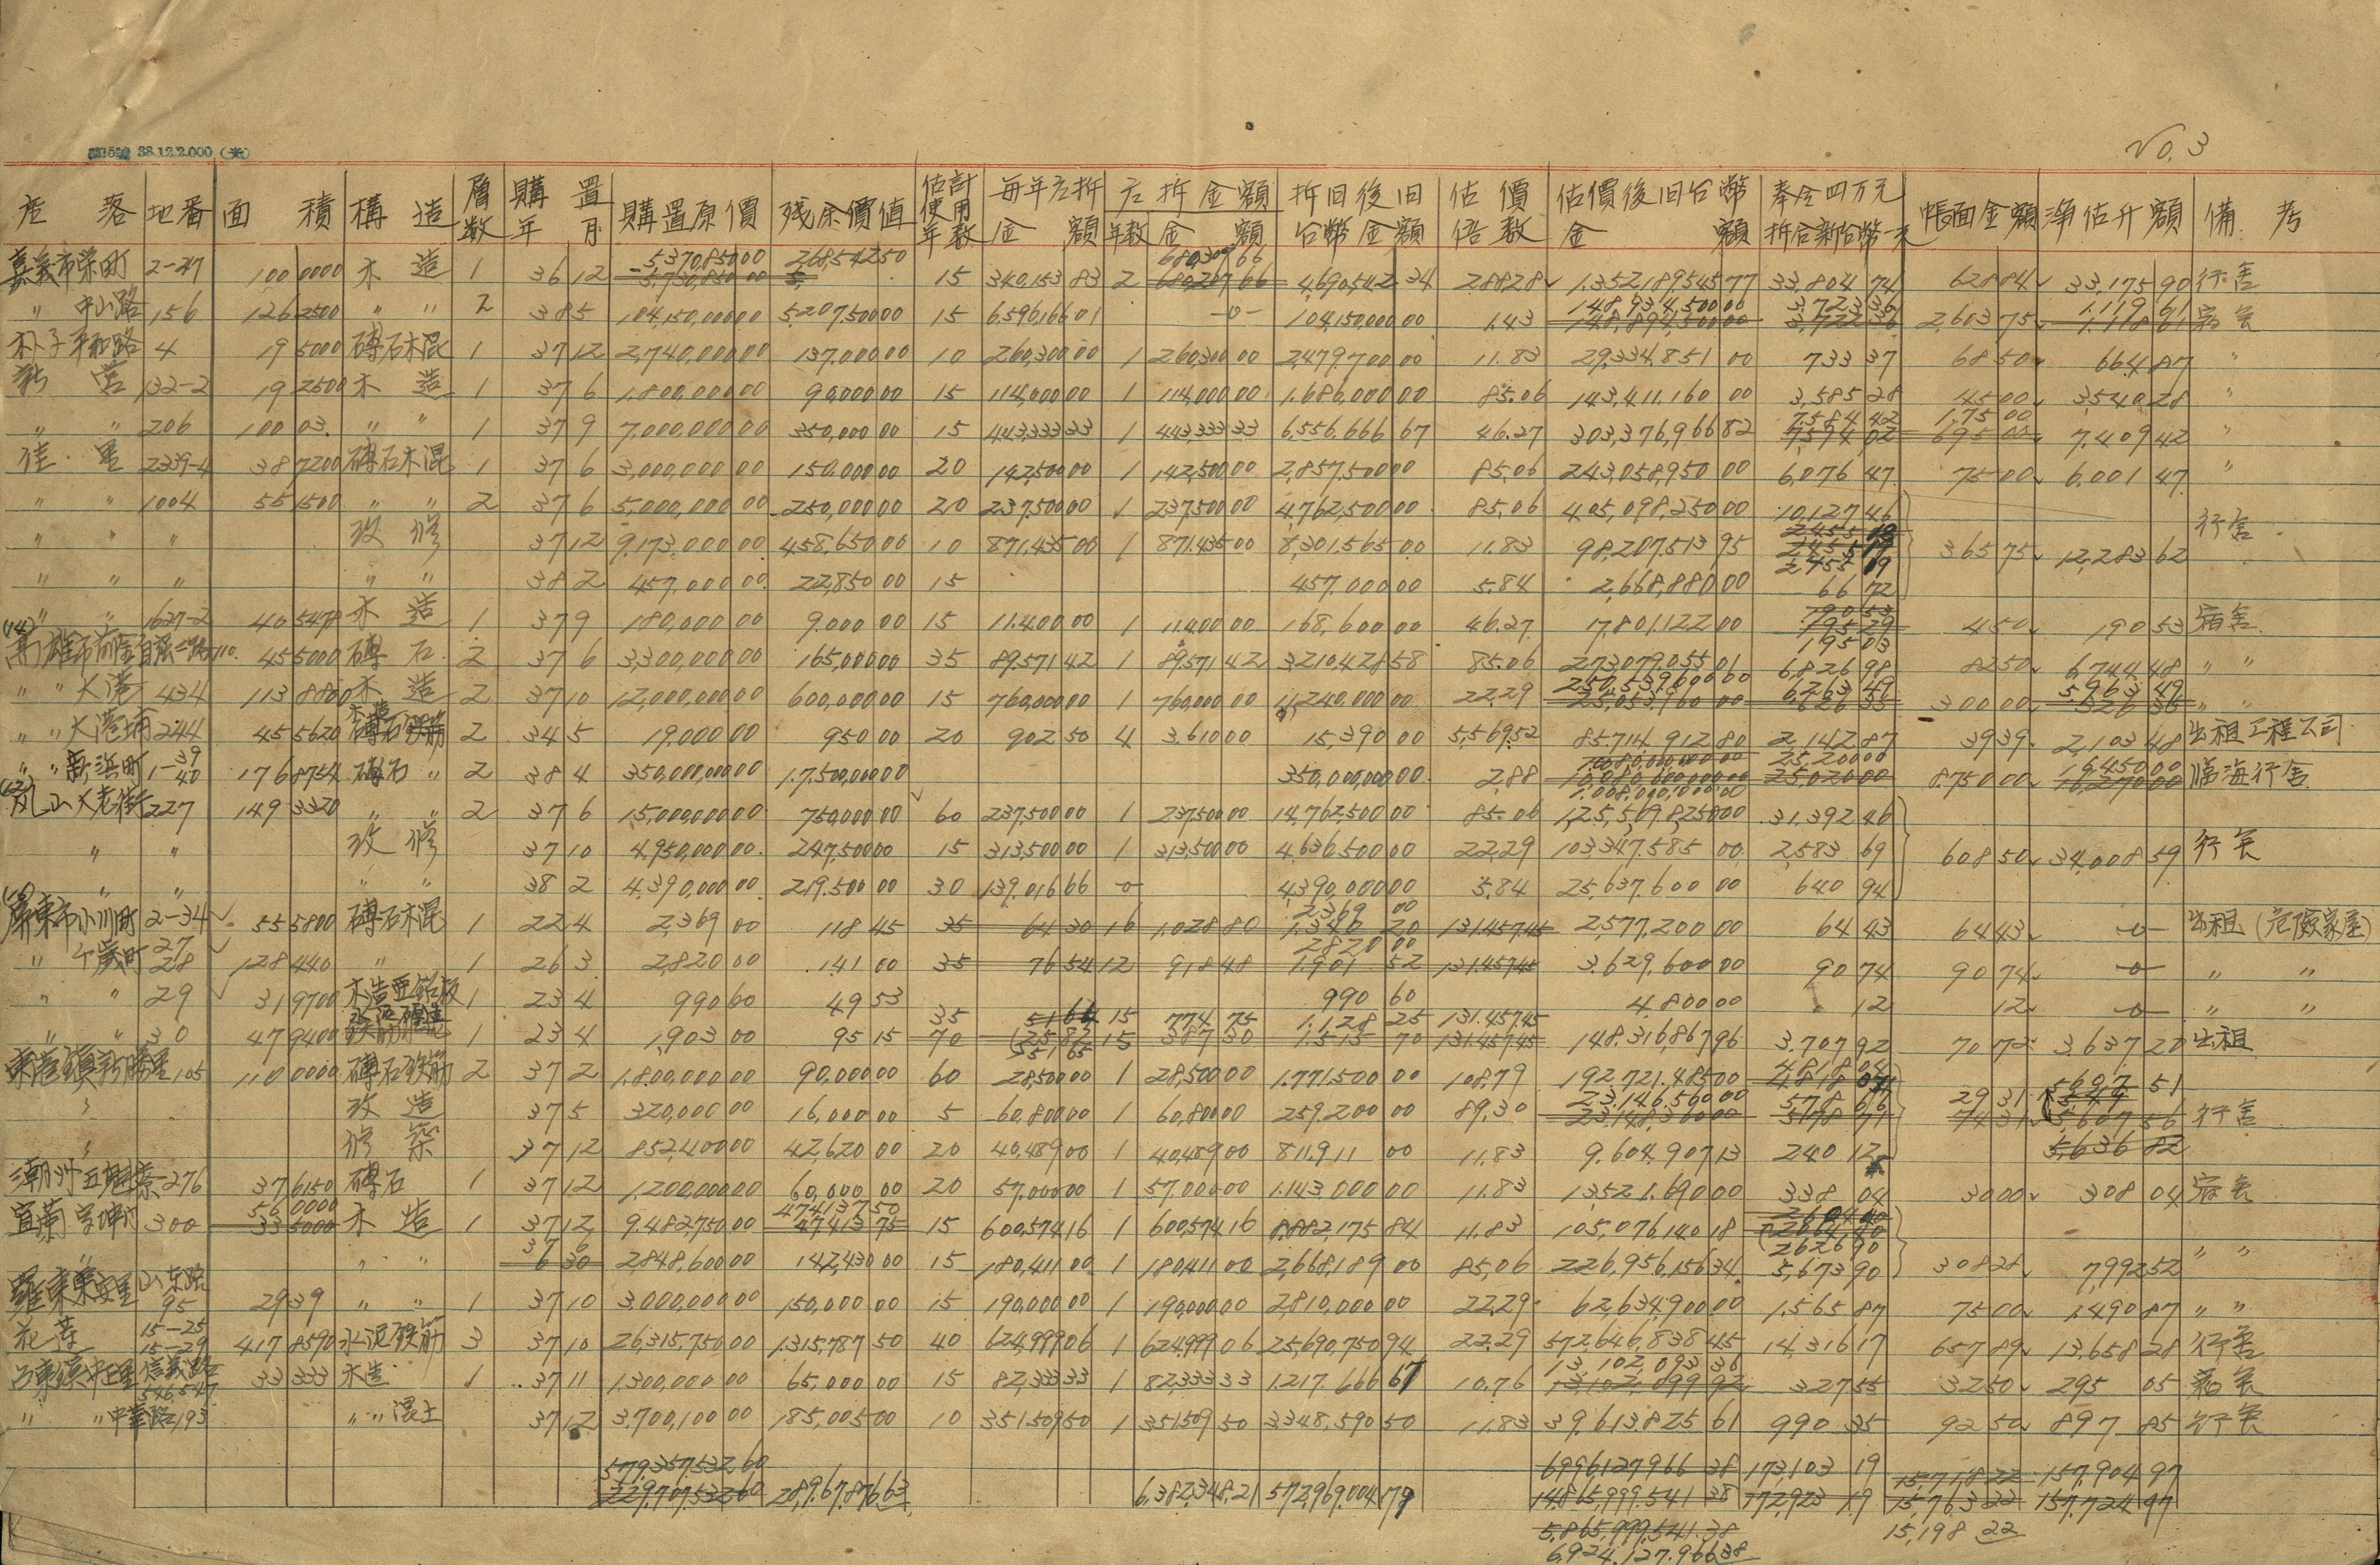 38.12.2.000 (米)
No. 3
座落 地番 面積 構造 層数 購置年月 購置原價 残余價值 估計使用年数 每年应折金額 应折金額 年数 金額 折旧後旧台幣金額 估價倍數 估價後旧台幣金額 奉令四万元折合新台幣一元 帳面金額 淨估升額 備考
嘉義市栄町 2-27 100 0000 木造 1 36 12 5,370,850 00 268,542 50 15 340,153 83 2 680,307 66 4,690,542 34 288.28 1,352,189,545 77 33,804 74 628 84 33,175 90 行舍
〃 中山路 156 126 2500 〃 〃 2 38 5 104,150,000 00 5,207,500 00 15 6,596,166 01 -0- 104,150,000 00 1.43 148,934,500 00 3,723 36 2,603 75 1,119 61 宿舍
朴子平和路 4 19 5000 磚石木混 1 37 12 2,740,000 00 137,000 00 10 260,300 00 1 260,300 00 2,479,700 00 11.83 29,334,851 00 733 37 68 50 664 87 〃
新営 132-2 19 2500 木造 1 37 6 1,800,000 00 90,000 00 15 114,000 00 1 114,000 00 1,686,000 00 85.06 143,411,160 00 3,585 28 45 00 3,540 28 〃
〃 〃 206 100 03 〃 〃 1 37 9 7,000,000 00 350,000 00 15 443,333 33 1 443,333 33 6,556,666 67 46.27 303,376,966 82 7,584 42 175 00 7,409 42 〃
佳里 2339-4 38 7200 磚石木混 1 37 6 3,000,000 00 150,000 00 20 142,500 00 1 142,500 00 2,857,500 00 85.06 243,058,950 00 6,076 47 75 00 6,001 47 〃
〃 〃 1004 55 1500 〃 〃 2 37 6 5,000,000 00 250,000 00 20 237,500 00 1 237,500 00 4,762,500 00 85.06 405,098,250 00 10,127 46
〃 〃 〃 改修 37 12 9,173,000 00 458,650 00 10 871,435 00 1 871,435 00 8,301,565 00 11.83 98,207,513 95 2,455 19 365 75 12,283 62 行舍
〃 〃 〃 〃 〃 38 2 457,000 00 22,850 00 15 457,000 00 5.84 2,668,880 00 66 72
〃 〃 1627-2 40 5470 木造 1 37 9 180,000 00 9,000 00 15 11,400 00 1 11,400 00 168,600 00 46.27 7,801,122 00 195 03 4 50 190 53 宿舍
高雄市前金自强二路110 45 5000 磚石 2 37 6 3,300,000 00 165,000 00 35 89,571 42 1 89,571 42 3,210,428 58 85.06 273,079,055 01 6,826 98 82 50 6,744 48 〃 〃
〃 〃 大港 434 113 8800 木造 2 37 10 12,000,000 00 600,000 00 15 760,000 00 1 760,000 00 11,240,000 00 22.29 250,539,600 00 6,263 49 300 00 5,963 49 〃 〃
〃 〃 大港埔 244 45 5620 磚石鉄筋 2 34 5 19,000 00 950 00 20 902 50 4 3,610 00 15,390 00 5,569.52 85,714,912 80 2,142 87 39 39 2,103 48 出租工程公司
〃 〃 新浜町 1-39 40 176 8754 磚石 〃 2 38 4 350,000,000 00 17,500,000 00 350,000,000 00 2.88 1,008,000,000 00 25,200 00 8,750 00 16,450 00 临海行舍
凤山大老街 227 149 3320 〃 〃 2 37 6 15,000,000 00 750,000 00 60 237,500 00 1 237,500 00 14,762,500 00 85.06 1,25,5,69,8,250 00 31,392 46
〃 〃 改修 37 10 4,950,000 00 247,500 00 15 313,500 00 1 313,500 00 4,636,500 00 22.29 103,347,585 00 2,583 69 608 50 34,008 59 行舍
〃 〃 〃 〃 38 2 4,390,000 00 219,500 00 30 139,016 66 -0- 4,390,000 00 5.84 25,637,600 00 640 94
屏東市小川町 2-34 55 5800 磚石木混 1 22 4 2,369 00 118 45 35 64 30 16 1,028 80 2,369 00 1,340 20 131,457.45 2,577,200 00 64 43 64 43 -0- 出租(危險家屋)
〃 千歲町 27 28 128 440 〃 1 26 3 2,820 00 141 00 35 76 54 12 918 48 2820 00 1,901 52 131,457.45 3,629,600 00 90 74 90 74 -0- 〃 〃
〃 〃 29 31 9700 木造亜鉛板 1 23 4 990 60 49 53 35 51 64 15 774 75 990 60 1,128 25 131,457.45 4,800 00 12 12 -0- 〃 〃
〃 〃 30 47 9400 1 23 4 1,903 00 95 15 70 15 387 30 1,515 70 131,457.45 148,316,867 96 3,707 92 70 72 3,637 20 出租
東港鎮新勝里 105 110 0000 磚石鉄筋 2 37 2 1,800,000 00 90,000 00 60 28,500 00 1 28,500 00 1,771,500 00 108.79 192,721,485 00 4,818 04
〃 改造 37 5 320,000 00 16,000 00 5 60,800 00 1 60,800 00 259,200 00 89.30 23,146,560 00 578 66 29 31 5,607 51 行舍
〃 修築 37 12 852,400 00 42,620 00 20 40,489 00 1 40,489 00 811,911 00 11.83 9,604,907 13 240 12 5,636 82
潮州五魁寮 276 37 6150 磚石 1 37 12 1,200,000 00 60,000 00 20 57,000 00 1 57,000 00 1,143,000 00 11.83 13,521,690 00 338 04 30 00 308 04 宿舍
宜蘭 300 56 0000 木造 1 37 12 9,482,750 00 474,137 50 15 600,574 16 1 600,574 16 8,882,175 84 11.83 105,076,140 18 2626 90
〃 〃 〃 37 6 2,848,600 00 142,430 00 15 180,411 00 1 180,411 00 2,668,189 00 85.06 226,956,156 34 5,673 90 308 28 7,992 52 〃 〃
羅東東安里 山东路 95 29 39 〃 〃 1 37 10 3,000,000 00 150,000 00 15 190,000 00 1 190,000 00 2,810,000 00 22.29 62,634,900 00 1,565 87 75 00 1,490 87 〃 〃
花蓮 15-25 15-29 417 8590 水泥鉄筋 3 37 10 26,315,750 00 1,315,787 50 40 624,999 06 1 624,999 06 25,690,750 94 22.29 572,646,838 45 14,316 17 657 89 13,658 28 行舍
台東鎮中正里 信義路 546,547 33 333 木造 1 37 11 1,300,000 00 65,000 00 15 82,333 33 1 82,333 33 1,217,666 67 10.76 13,102,093 36 327 55 32 50 295 05 宿舍
〃 〃 中華路2,193 〃 〃 混土 37 12 3,700,100 00 185,005 00 10 351,509 50 1 351,509 50 3,348,590 50 11.83 39,613,825 61 990 35 92 50 897 85 行舍
579,357,532 60 6996,127,966 38 173,103 19 15,718 22 157,904 97
229,707,532 60 28,967,876 63 6,382,348.21 572,969,004 79 14,865,999,541 38 172,923 19 15,763 22 157,724 97
5,865,999,541.38 15,198 22
6,924,127,966 38